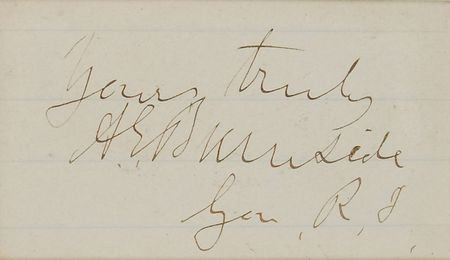 Yours truly
A E Burnside
Gov, R, I,